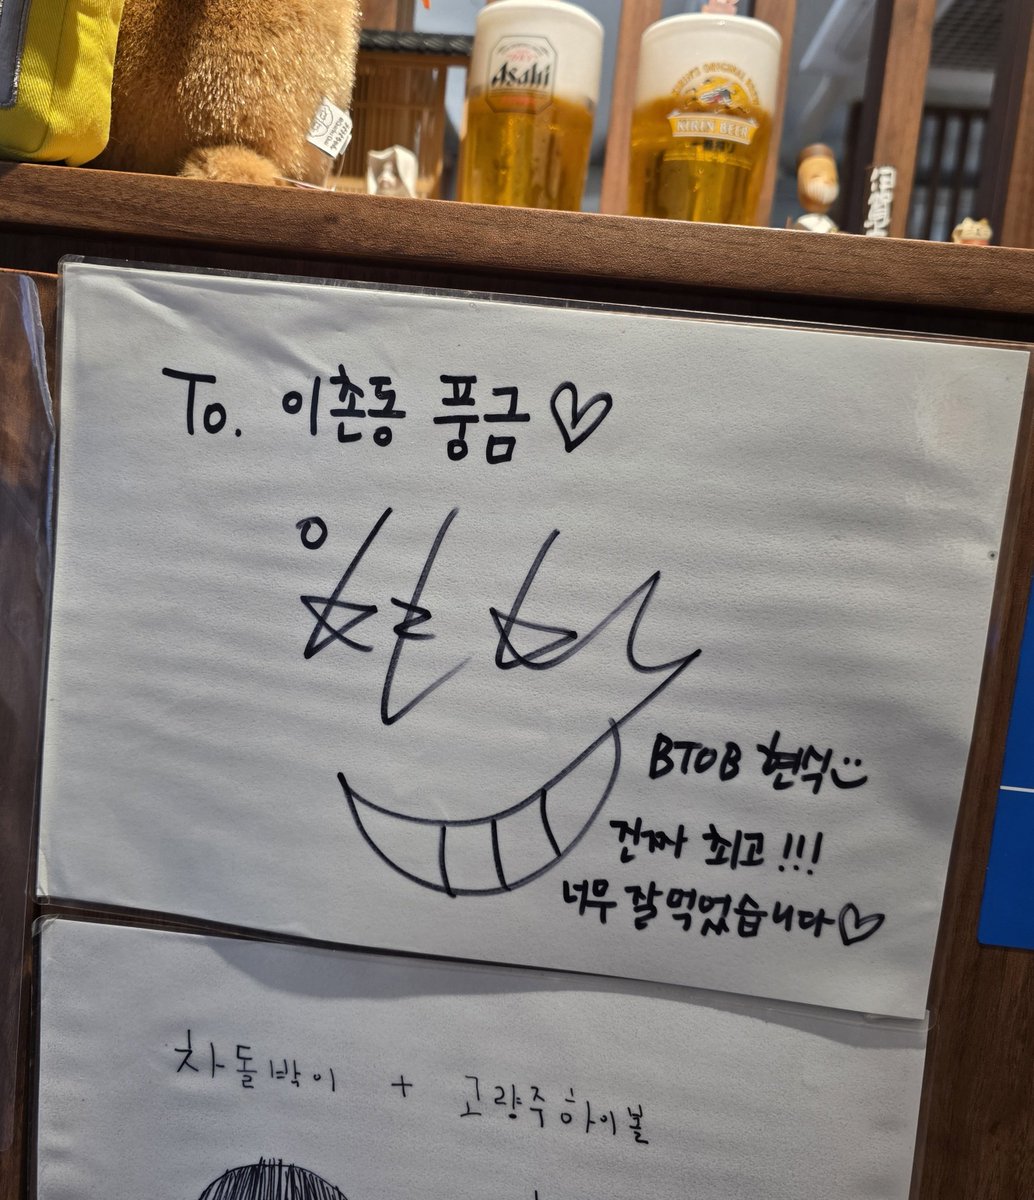 Asahi
KIRIN BEER
To. 이촌동 풍금♡
BTOB 현식
진짜 최고!!!
너무 잘 먹었습니다♡
차돌박이 + 고량주하이볼